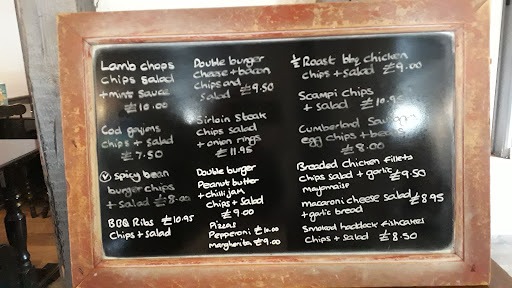 Lamb chops
chips salad
+ mint sauce
£10.00
Cod goujons
chips + salad
£7.50
Ⓥ spicy bean
burger chips
+ salad £8.00
BBQ Ribs £10.95
Chips + salad
Double burger
cheese + bacon
chips and
salad £9.50
Sirloin Steak
Chips salad
+ onion rings
£11.95
Double burger
Peanut butter
+ chilli jam
Chips + salad
£9.00
Pizzas
Pepperoni £10.00
Margherita £9.00
½ Roast bbq chicken
chips + salad £9.00
Scampi chips
+ salad £10.95
Cumberland Sausage
egg chips + beans
£8.00
Breaded chicken fillets
chips salad + garlic £9.50
mayonnaise
macaroni cheese salad £8.95
+ garlic bread
Smoked haddock fishcakes
Chips + salad £8.50